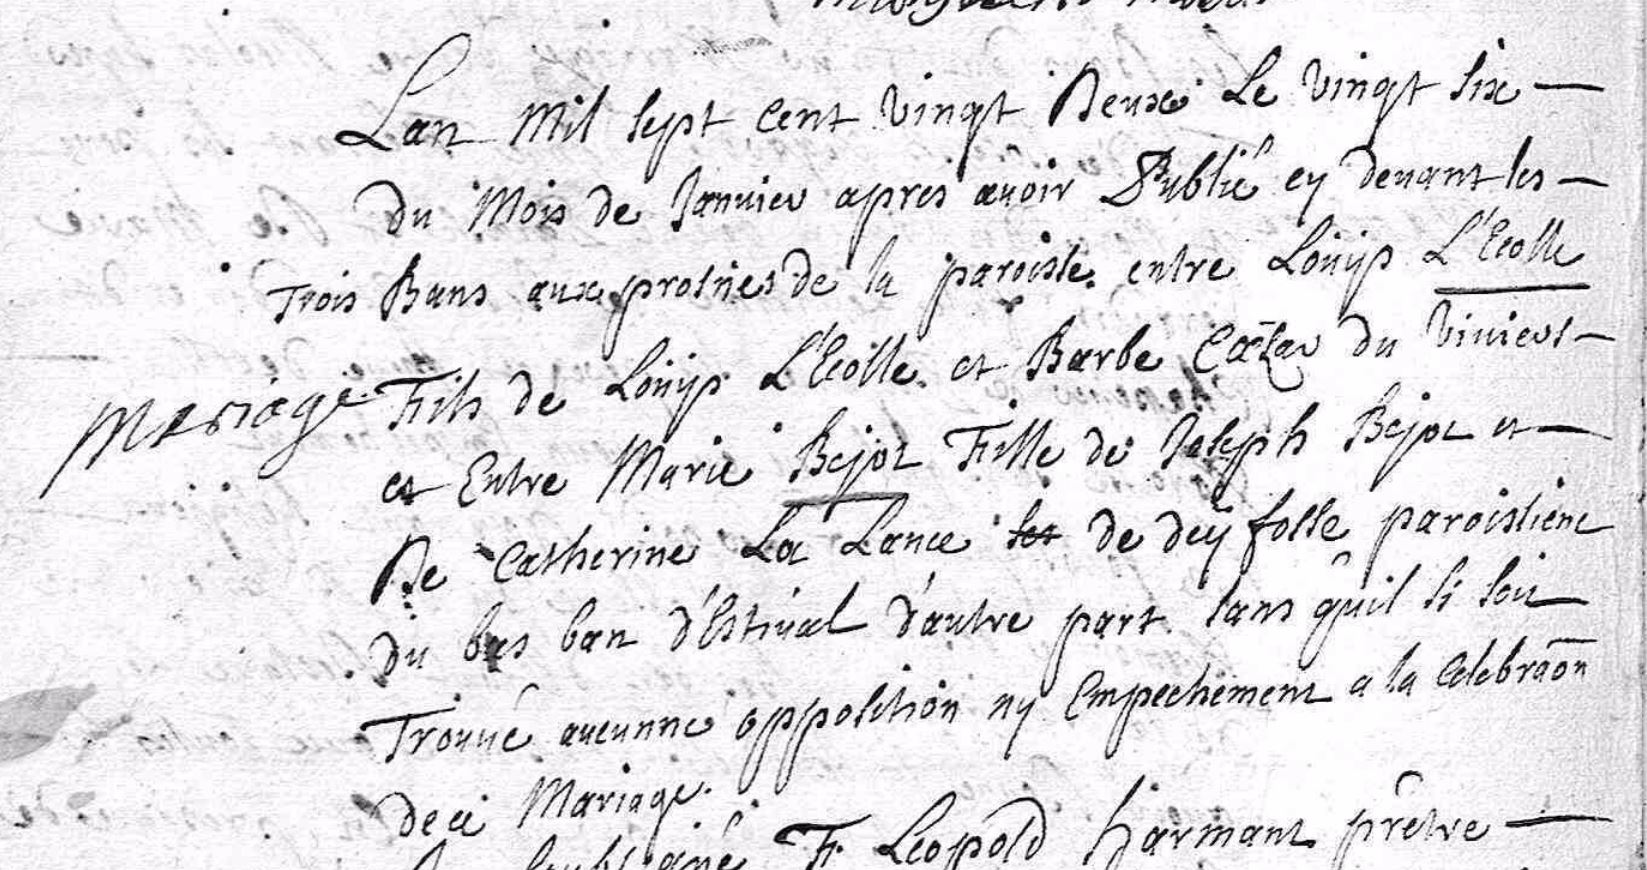 Lan mil sept cent vingt Deux Le vingt six —
du Mois de Janvier apres auoir Publié cy deuant les —
Trois Bans aux prosnes de la paroisse. entre Loüys L'Ecolle
Mariage Fils de Loüys L'Ecolle. et Barbe du Viviers —
et Entre Marie Bejot Fille de Joseph Bejot et —
De Catherine La Lance de deÿfosse paroissiene
du bas ban d'Estiual d'autre part. sans qu'il si soit
Trouué aucunne opposition ny Empechement a la Celebraõn
de ce Mariage.
soubsigné F. Leopold harmant prêtre —